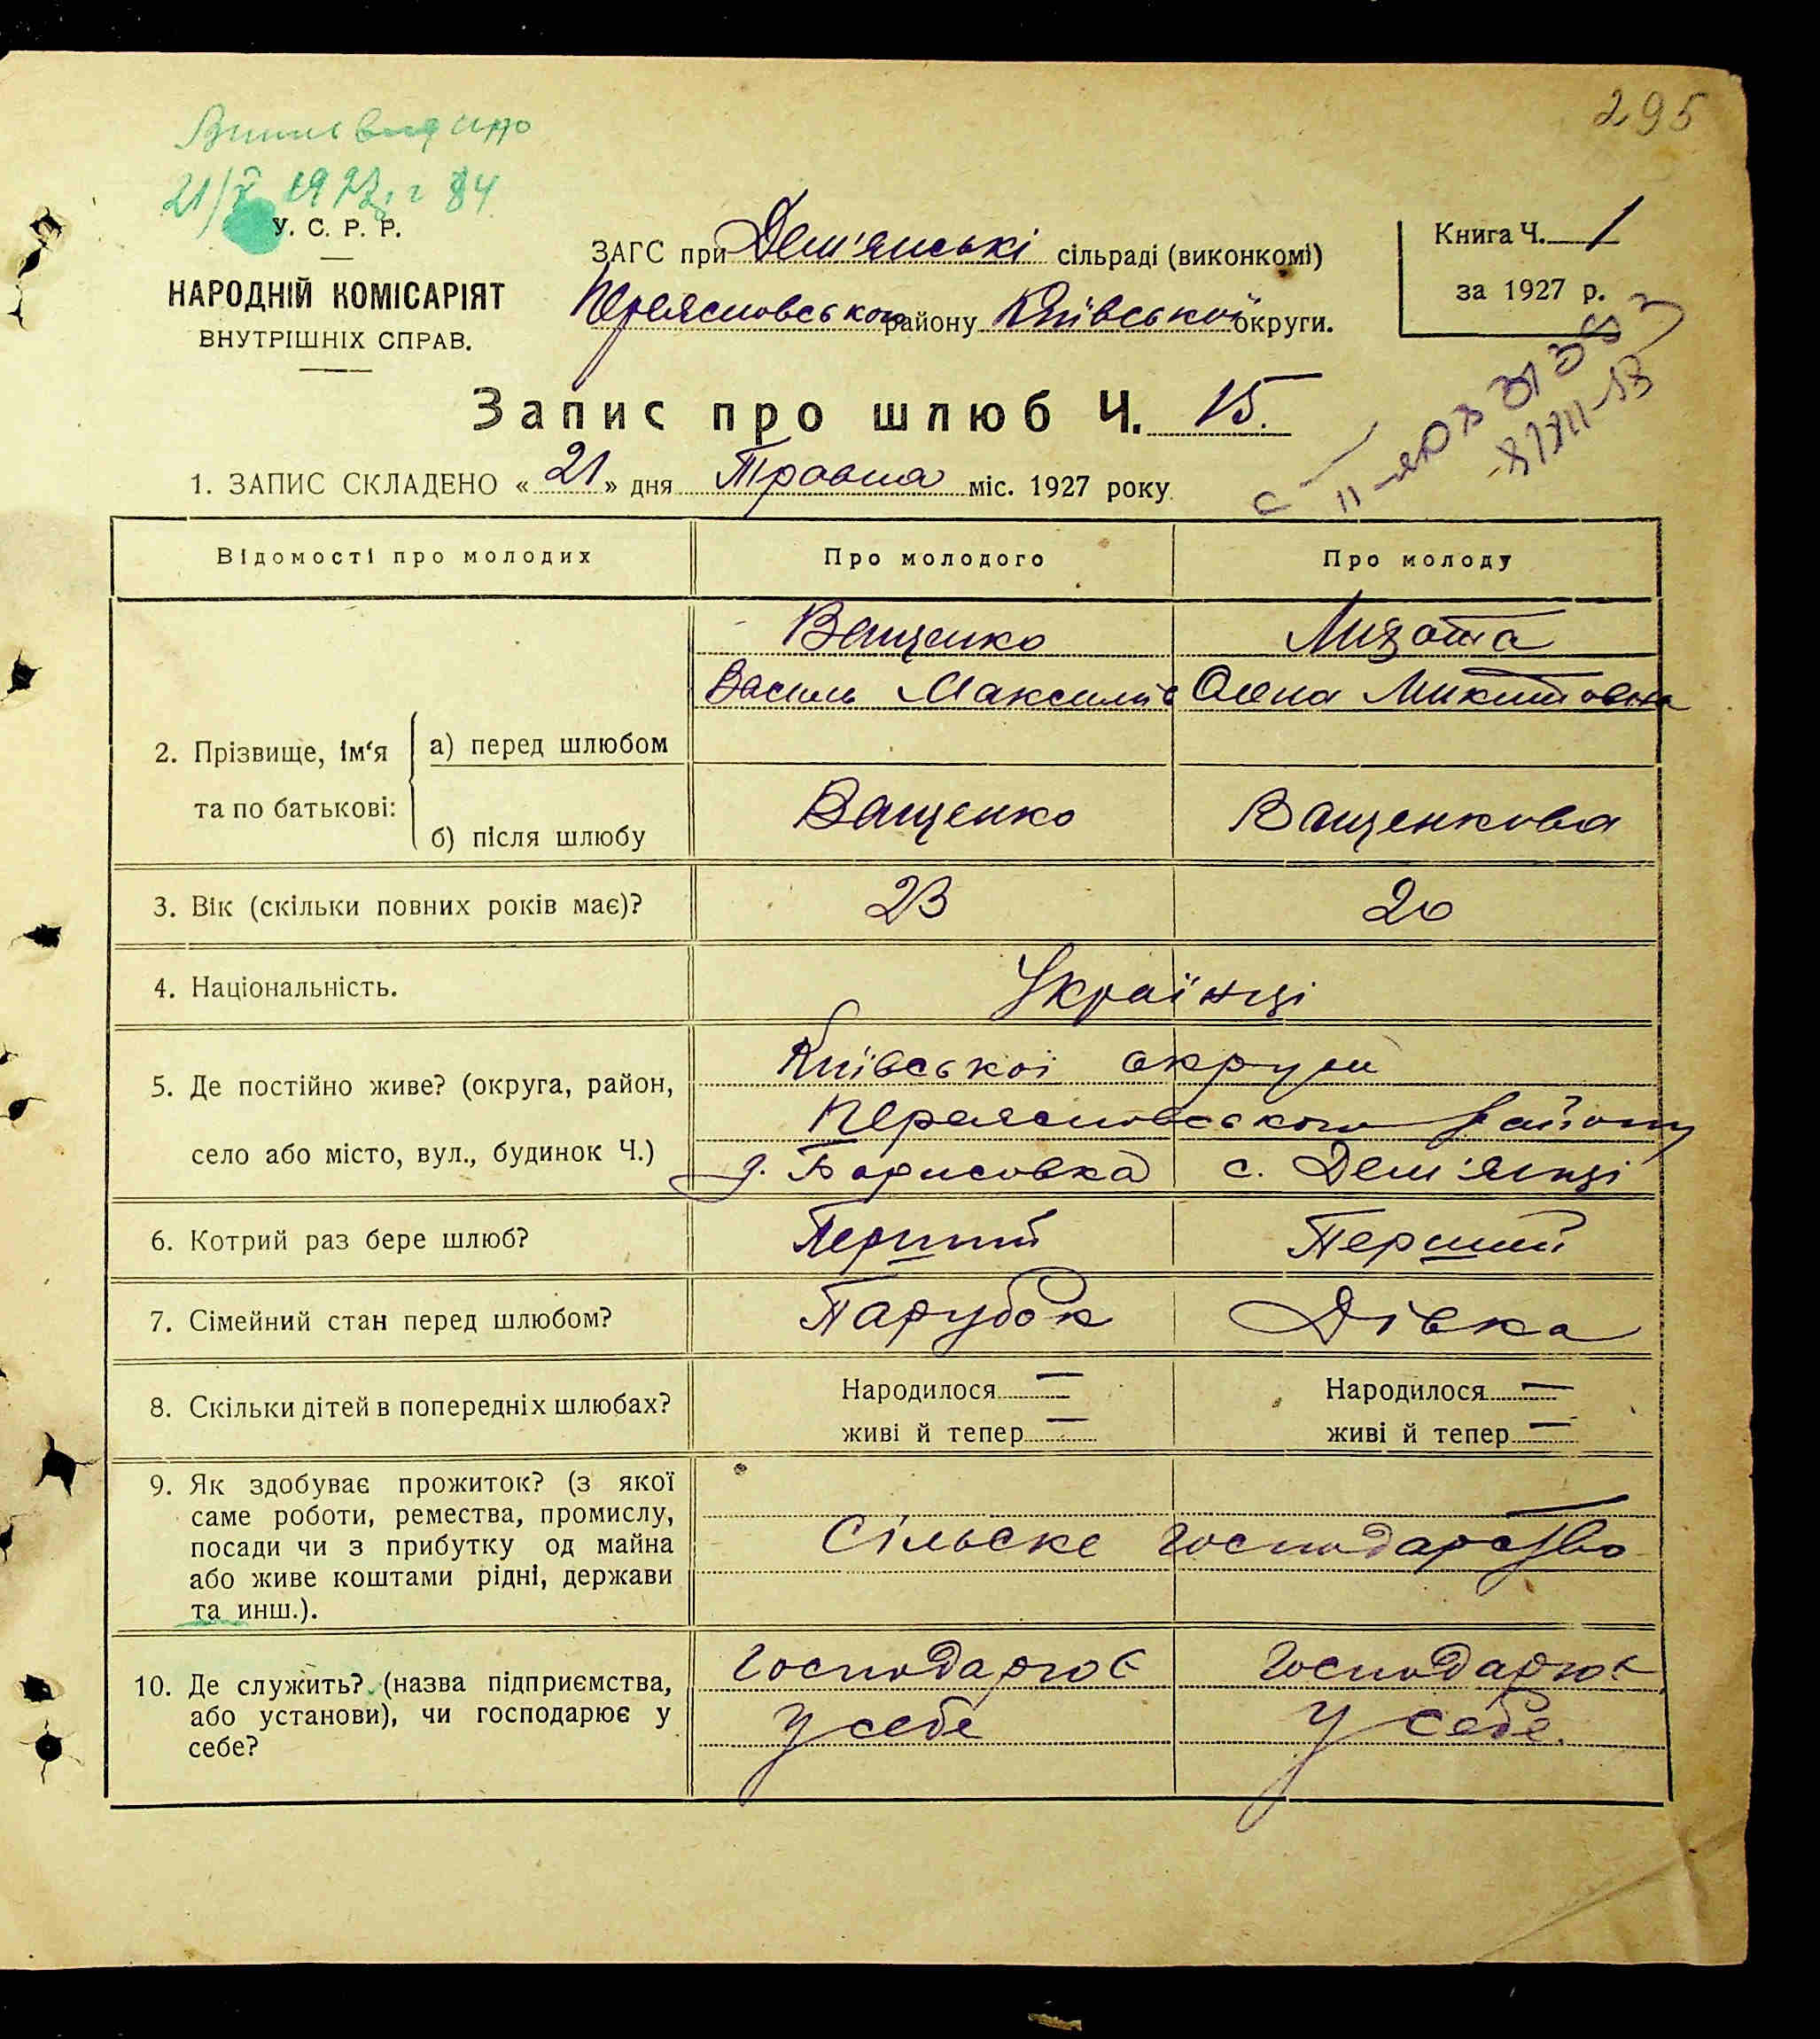 295
21/V 1927 г 84
У. С. Р. Р.
НАРОДНІЙ КОМІСАРІЯТ
ВНУТРІШНІХ СПРАВ.
ЗАГС при Дем'янські сільраді (виконкомі)
Переясловського району Київської округи.
Книга Ч. 1
за 1927 р.
Запис про шлюб Ч. 15.
1. ЗАПИС СКЛАДЕНО « 21 » дня Травня міс. 1927 року
Відомості про молодих Про молодого Про молоду
2. Прізвище, ім‘я та по батькові:
а) перед шлюбом
Ващенко
Василь Максимів
Лизота
Олена Микитовна
б) після шлюбу
Ващенко Ващенкова
3. Вік (скільки повних років має)? 23 20
4. Національність. Українці
5. Де постійно живе? (округа, район,
село або місто, вул., будинок Ч.)
Київської округи
Переясловського району
д. Борисовка с. Дем'янці
6. Котрий раз бере шлюб? Перший Перший
7. Сімейний стан перед шлюбом? Парубок Дівка
8. Скільки дітей в попередніх шлюбах?
Народилося — Народилося —
живі й тепер — живі й тепер —
9. Як здобуває прожиток? (з якої
саме роботи, ремества, промислу,
посади чи з прибутку од майна
або живе коштами рідні, держави
та инш.).
Сільске господарство
10. Де служить? (назва підприємства,
або установи), чи господарює у
себе?
господарює господарює
у себе у себе.